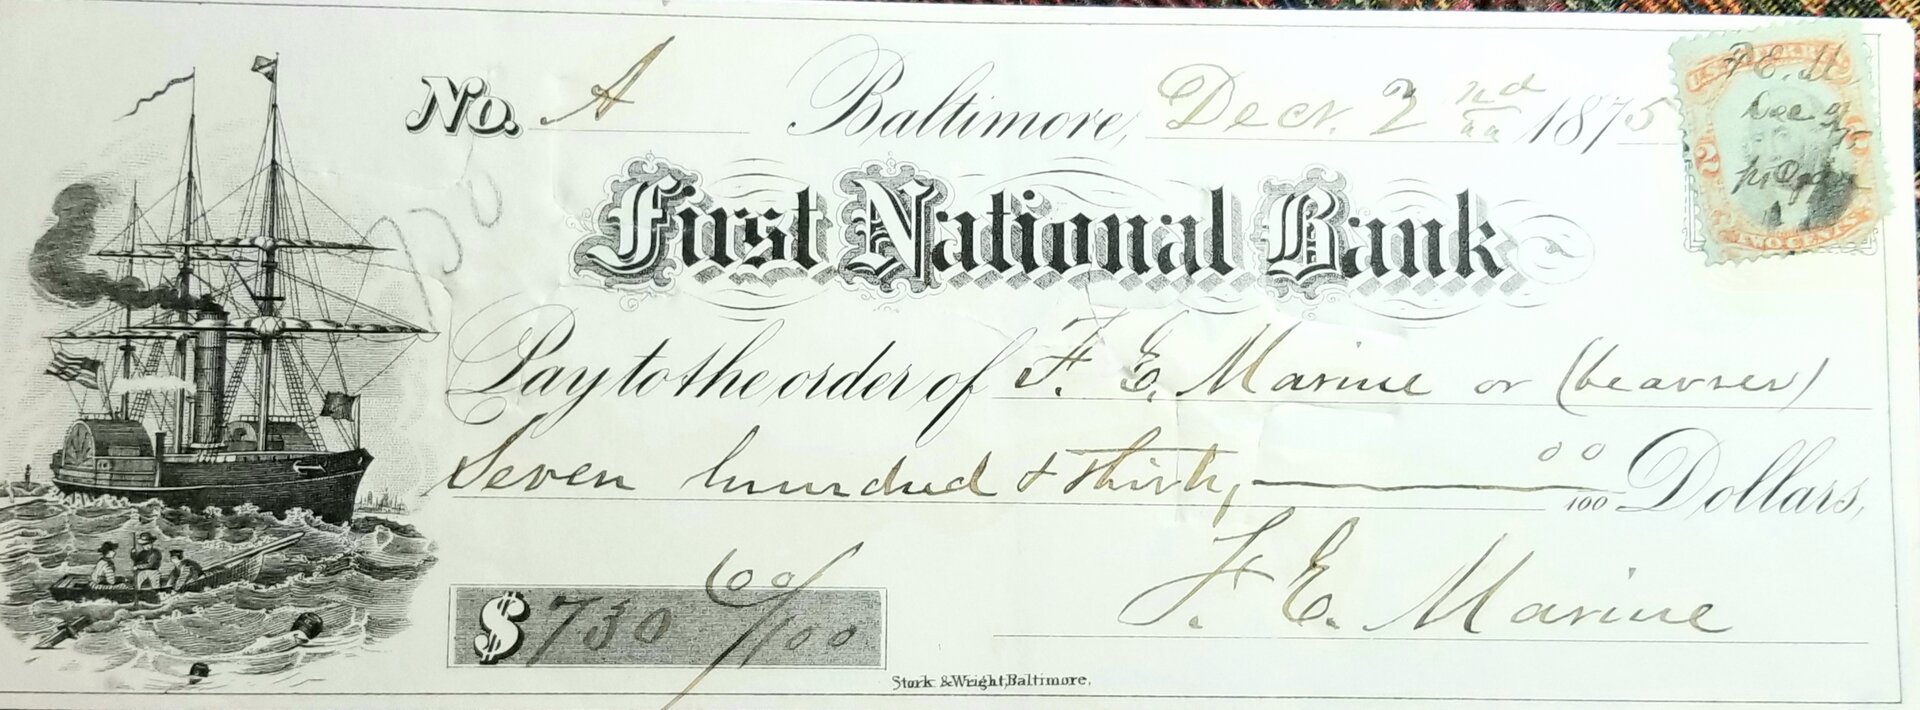 No. A Baltimore, Decr. 2 nd 1875
First National Bank
Pay to the order of F. E. Marine or (bearrer)
Seven hundred & thirty, 00/100 Dollars,
$730 00/100
F. E. Marine
Stork & Wright, Baltimore.
F E. M.
Dec 2
75
TWO CENTS
2